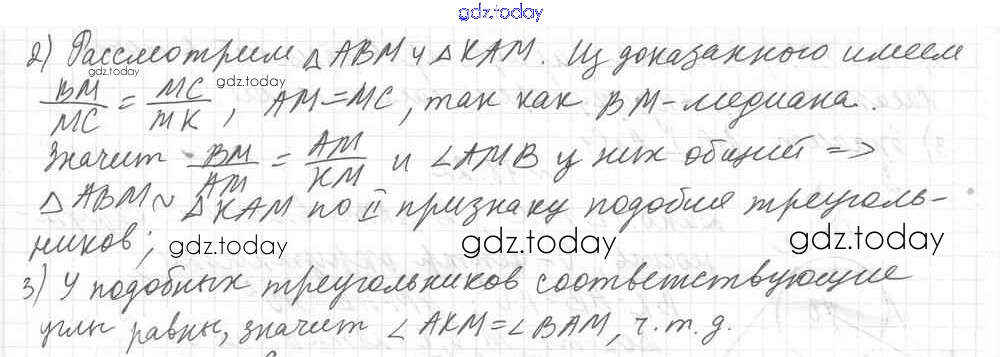 gdz.today
2) Рассмотрим △ABM и △KAM. Из доказанного имеем
gdz.today
gdz.today
BM/MC = MC/MK, AM=MC, так как BM-медиана.
Значит BM/AM = AM/KM и ∠AMB у них общий =>
△ABM ~ △KAM по II признаку подобия треуголь-
ников;
gdz.today gdz.today gdz.today
3) У подобных треугольников соответствующие
углы равны, значит ∠AKM=∠BAM, ч.т.д.